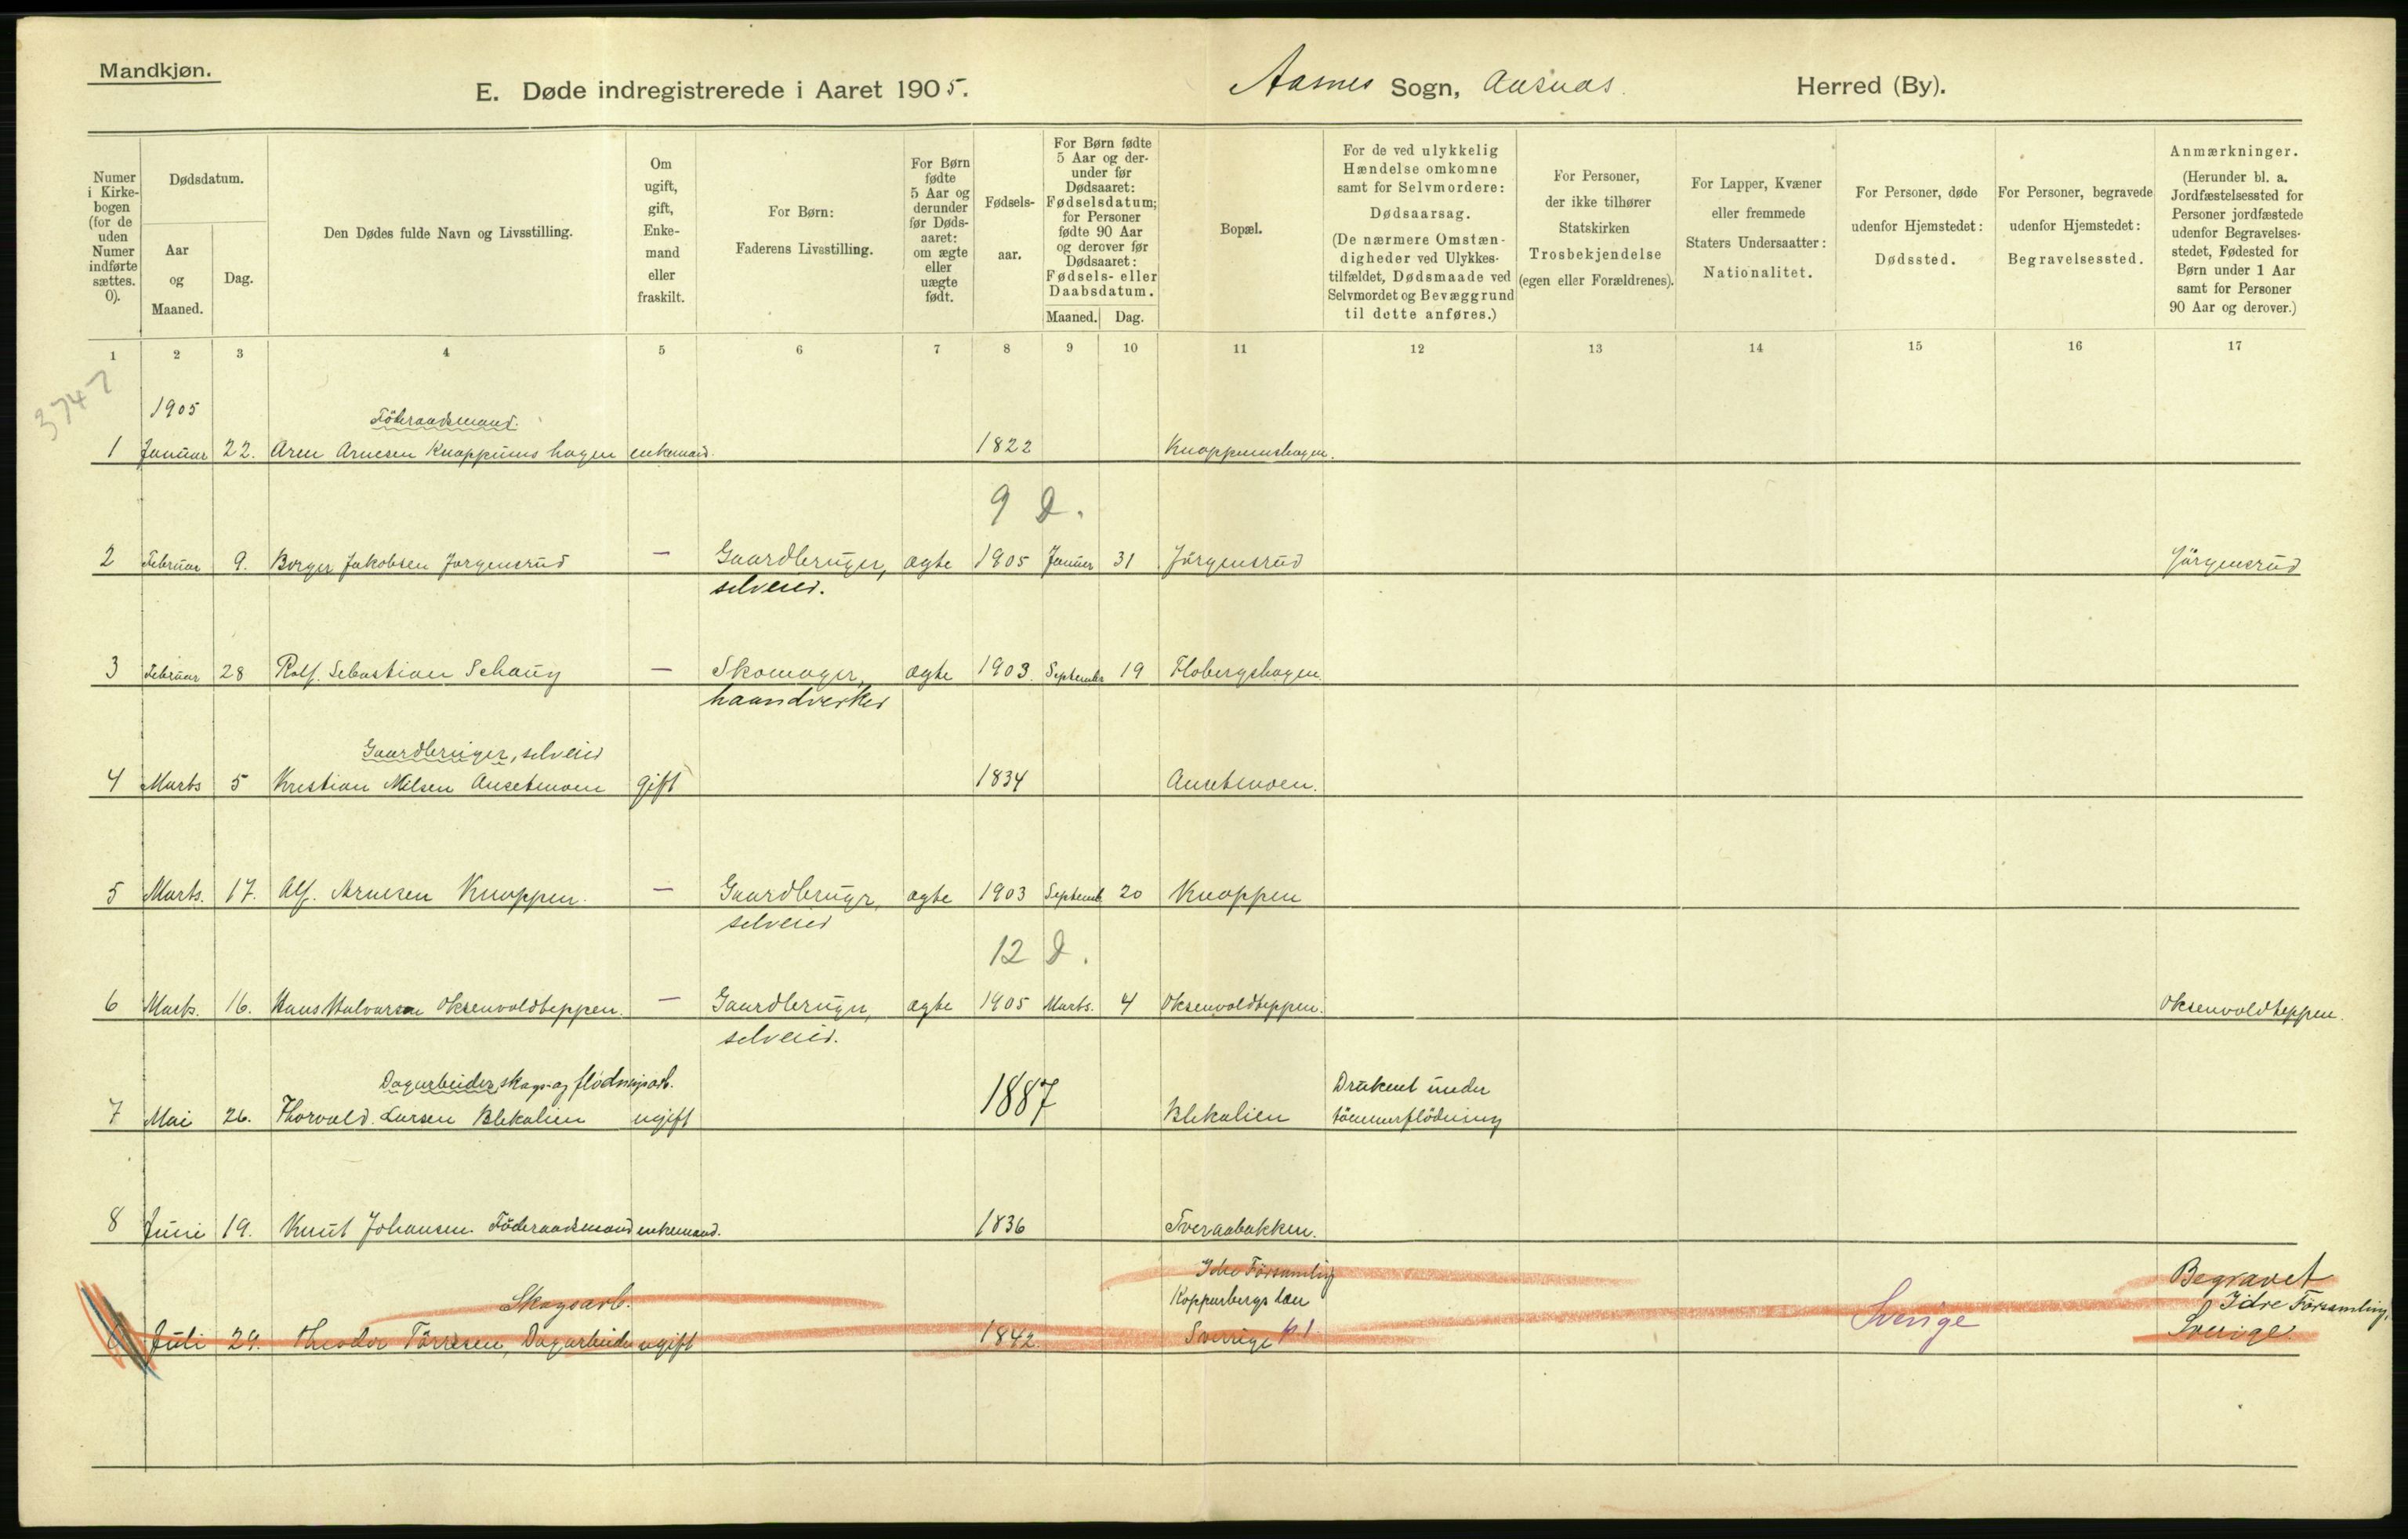 Mandkjøn.
E. Døde indregistrerede i Aaret 1905. Aasnes Sogn, Aasnas. Herred (By).
Numer i Kirkebogen (for de uden Numer indførte sættes. 0).
Dødsdatum.
Aar og Maaned.
Dag.
Den Dødes fulde Navn og Livsstilling.
Om ugift, gift, Enkemand eller fraskilt.
For Børn: Faderens Livsstilling.
For Børn fødte 5 Aar og derunder før Dødsaaret: om ægte eller uægte født.
Fødselsaar.
For Børn fødte 5 Aar og derunder før Dødsaaret: Fødselsdatum; for Personer fødte 90 Aar og derover før Dødsaaret: Fødsels- eller Daabsdatum.
Maaned. Dag.
Bopæl.
For de ved ulykkelig Hændelse omkomne samt for Selvmordere: Dødsaarsag. (De nærmere Omstændigheder ved Ulykkestilfældet, Dødsmaade ved Selvmordet og Bevæggrund til dette anføres.)
For Personer, der ikke tilhører Statskirken Trosbekjendelse (egen eller Forældrenes).
For Lapper, Kvæner eller fremmede Staters Undersaatter: Nationalitet.
For Personer, døde udenfor Hjemstedet: Dødssted.
For Personer, begravede udenfor Hjemstedet: Begravelsessted.
Anmærkninger. (Herunder bl. a. Jordfæstelsessted for Personer jordfæstede udenfor Begravelsesstedet, Fødested for Børn under 1 Aar samt for Personer 90 Aar og derover.)
1 2 3 4 5 6 7 8 9 10 11 12 13 14 15 16 17
3747
1905
Föderaadsmand.
1 Januar 22. Aren Arnesen Knappumshagen enkemand. 1822 Knappumshagen.
9 D.
2 Februar 9. Borger Jakobsen Jørgensrud — Gaardbruger, ægte 1905 Januar 31 Jörgensrud Jörgensrud
selveier.
3 Februar 28 Rolf. Sebastian Schaug — Skomager, ægte 1903. September 19 Flobergshagen.
haandverker
Gaardbruger, selveier
4 Marts 5 Kristian Nilsen Ansetmoen gift 1834 Ansetmoen.
5 Marts. 17. Alf. Arnesen Knappen. — Gaardbruger, ægte 1903 Septemb. 20 Knappen
selveier
12 D.
6 Marts. 16. Hans Halvorsen Oksenvoldteppen. — Gaardbruger, ægte 1905 Marts. 4 Oksenvoldteppen. Oksenvoldteppen.
selveier.
Dagarbeider, skogs- og flødningsarb. Druknet under
7 Mai 26. Thorvald. Larsen Blekalien ugift 1887 Blekalien tömmerflödning
8 Juni 19. Knut Johansen. Föderaadsmand enkemand. 1836 Tveraabakken.
Idre Församling Begravet
Skogsarb. Kopparbergs Læn Idre Församling,
Juli 29. Theodor Törresen, Dagarbeider ugift 1842. Sverrige Sverige Sverige.